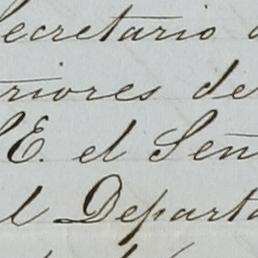 Secretario
riores de
S.E. el Señ
l Departa